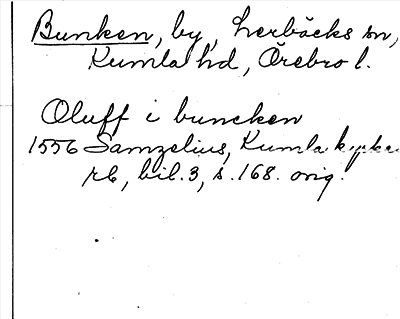 Bunken, by, Lerbäcks sn,
Kumla hd, Örebro l.
Oluff i buncken
1556 Samzelius, Kumla kyrka.
rb, bil. 3, s. 168. orig.